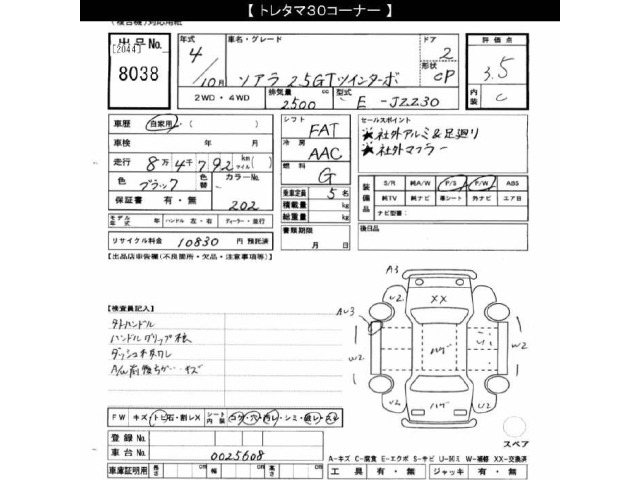 【 トレタマ30コーナー 】
(複合機)対応用紙
出品No.
[2044]
8038
年式
4
10月
車名・グレード
ソアラ 2.5GTツインターボ
ドア
2
形状
CP
評価点
3.5
内装
C
2WD・4WD
排気量
2500
cc
型式
E-JZZ30
車歴
自家用・( )
車検
年
月
走行
8万4千792
km
マイル
( )
色
ブラック
色替
カラーNo.
202
保証書
有・無
モデル年式
年
ハンドル
左・右
ディーラー・並行
リサイクル料金
10830
円 預託済
シフト
FAT
冷房
AAC
燃料
G
乗車定員
5名
積載量
kg
総重量
kg
書類期限
月
日
セールスポイント
★社外アルミ&足廻り
★社外マフラー
装備品
S/R
純A/W
P/S
P/W
ABS
純TV
純ナビ
革シート
外ナビ
エア B
ナビ型番:
後日品
【出品店申告欄(不良箇所・欠品・注意事項等)】
【検査員記入】
外ハンドル
ハンドルグリップ様
ダッシュボードワレ
A3
AU3
U2
U2
XX
W2
W2
ハゲ
U2
ハゲ
U2
スペア
FW
キズ・トビ石・割レX
シート内装
コゲ・穴・汚レ・シミ・破レ・スレ
登録No.
車台No.
0025608
車庫証明用
長さ
cm
幅
cm
高さ
cm
A-キズ C-腐食 E-エクボ S-サビ U-凹ミ W-補修 XX-交換済
工具
有・無
ジャッキ
有・無